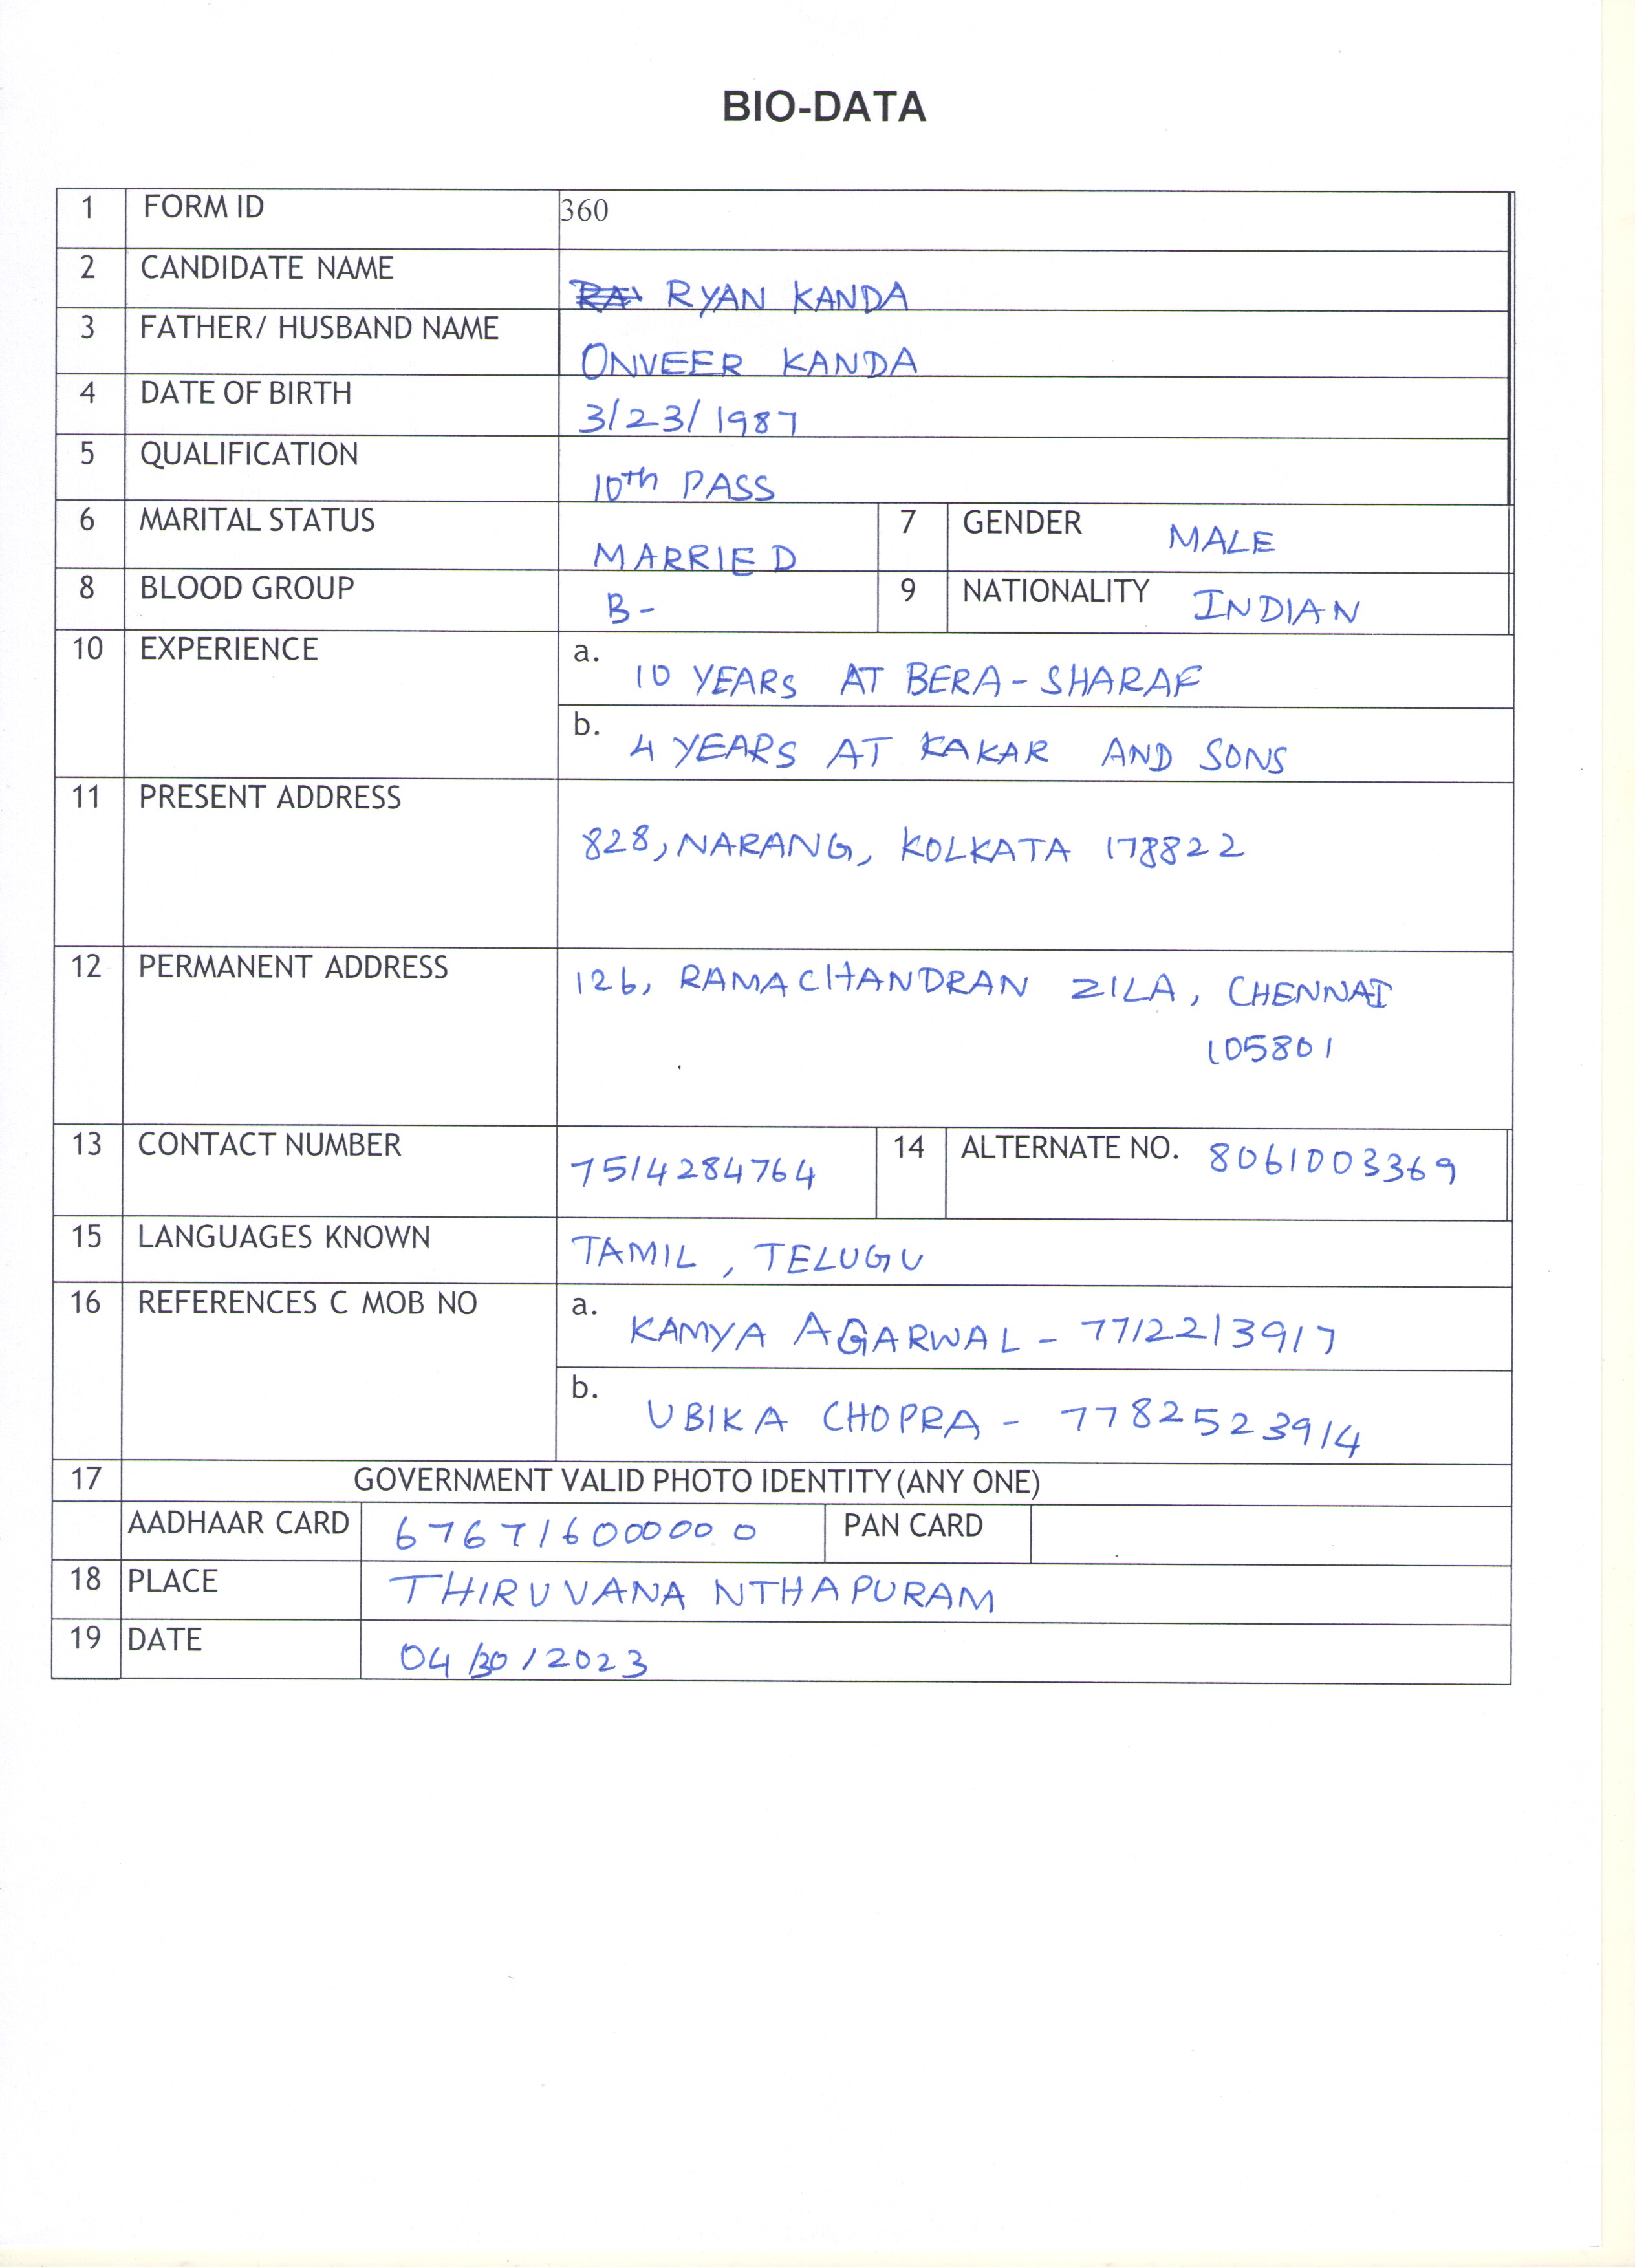 BIO-DATA
1 FORM ID 360
2 CANDIDATE NAME RYAN KANDA
3 FATHER/ HUSBAND NAME ONVEER KANDA
4 DATE OF BIRTH 3/23/1987
5 QUALIFICATION 10th PASS
6 MARITAL STATUS MARRIED 7 GENDER MALE
8 BLOOD GROUP B- 9 NATIONALITY INDIAN
10 EXPERIENCE a. 10 YEARS AT BERA-SHARAF
b. 4 YEARS AT KAKAR AND SONS
11 PRESENT ADDRESS
828, NARANG, KOLKATA 178822
12 PERMANENT ADDRESS 126, RAMACHANDRAN ZILA, CHENNAI
105801
13 CONTACT NUMBER 7514284764 14 ALTERNATE NO. 8061003369
15 LANGUAGES KNOWN TAMIL, TELUGU
16 REFERENCES C MOB NO a. KAMYA AGARWAL - 7712213917
b. UBIKA CHOPRA - 7782523914
17 GOVERNMENT VALID PHOTO IDENTITY (ANY ONE)
AADHAAR CARD 676716000000 PAN CARD
18 PLACE THIRUVANANTHAPURAM
19 DATE 04/30/2023